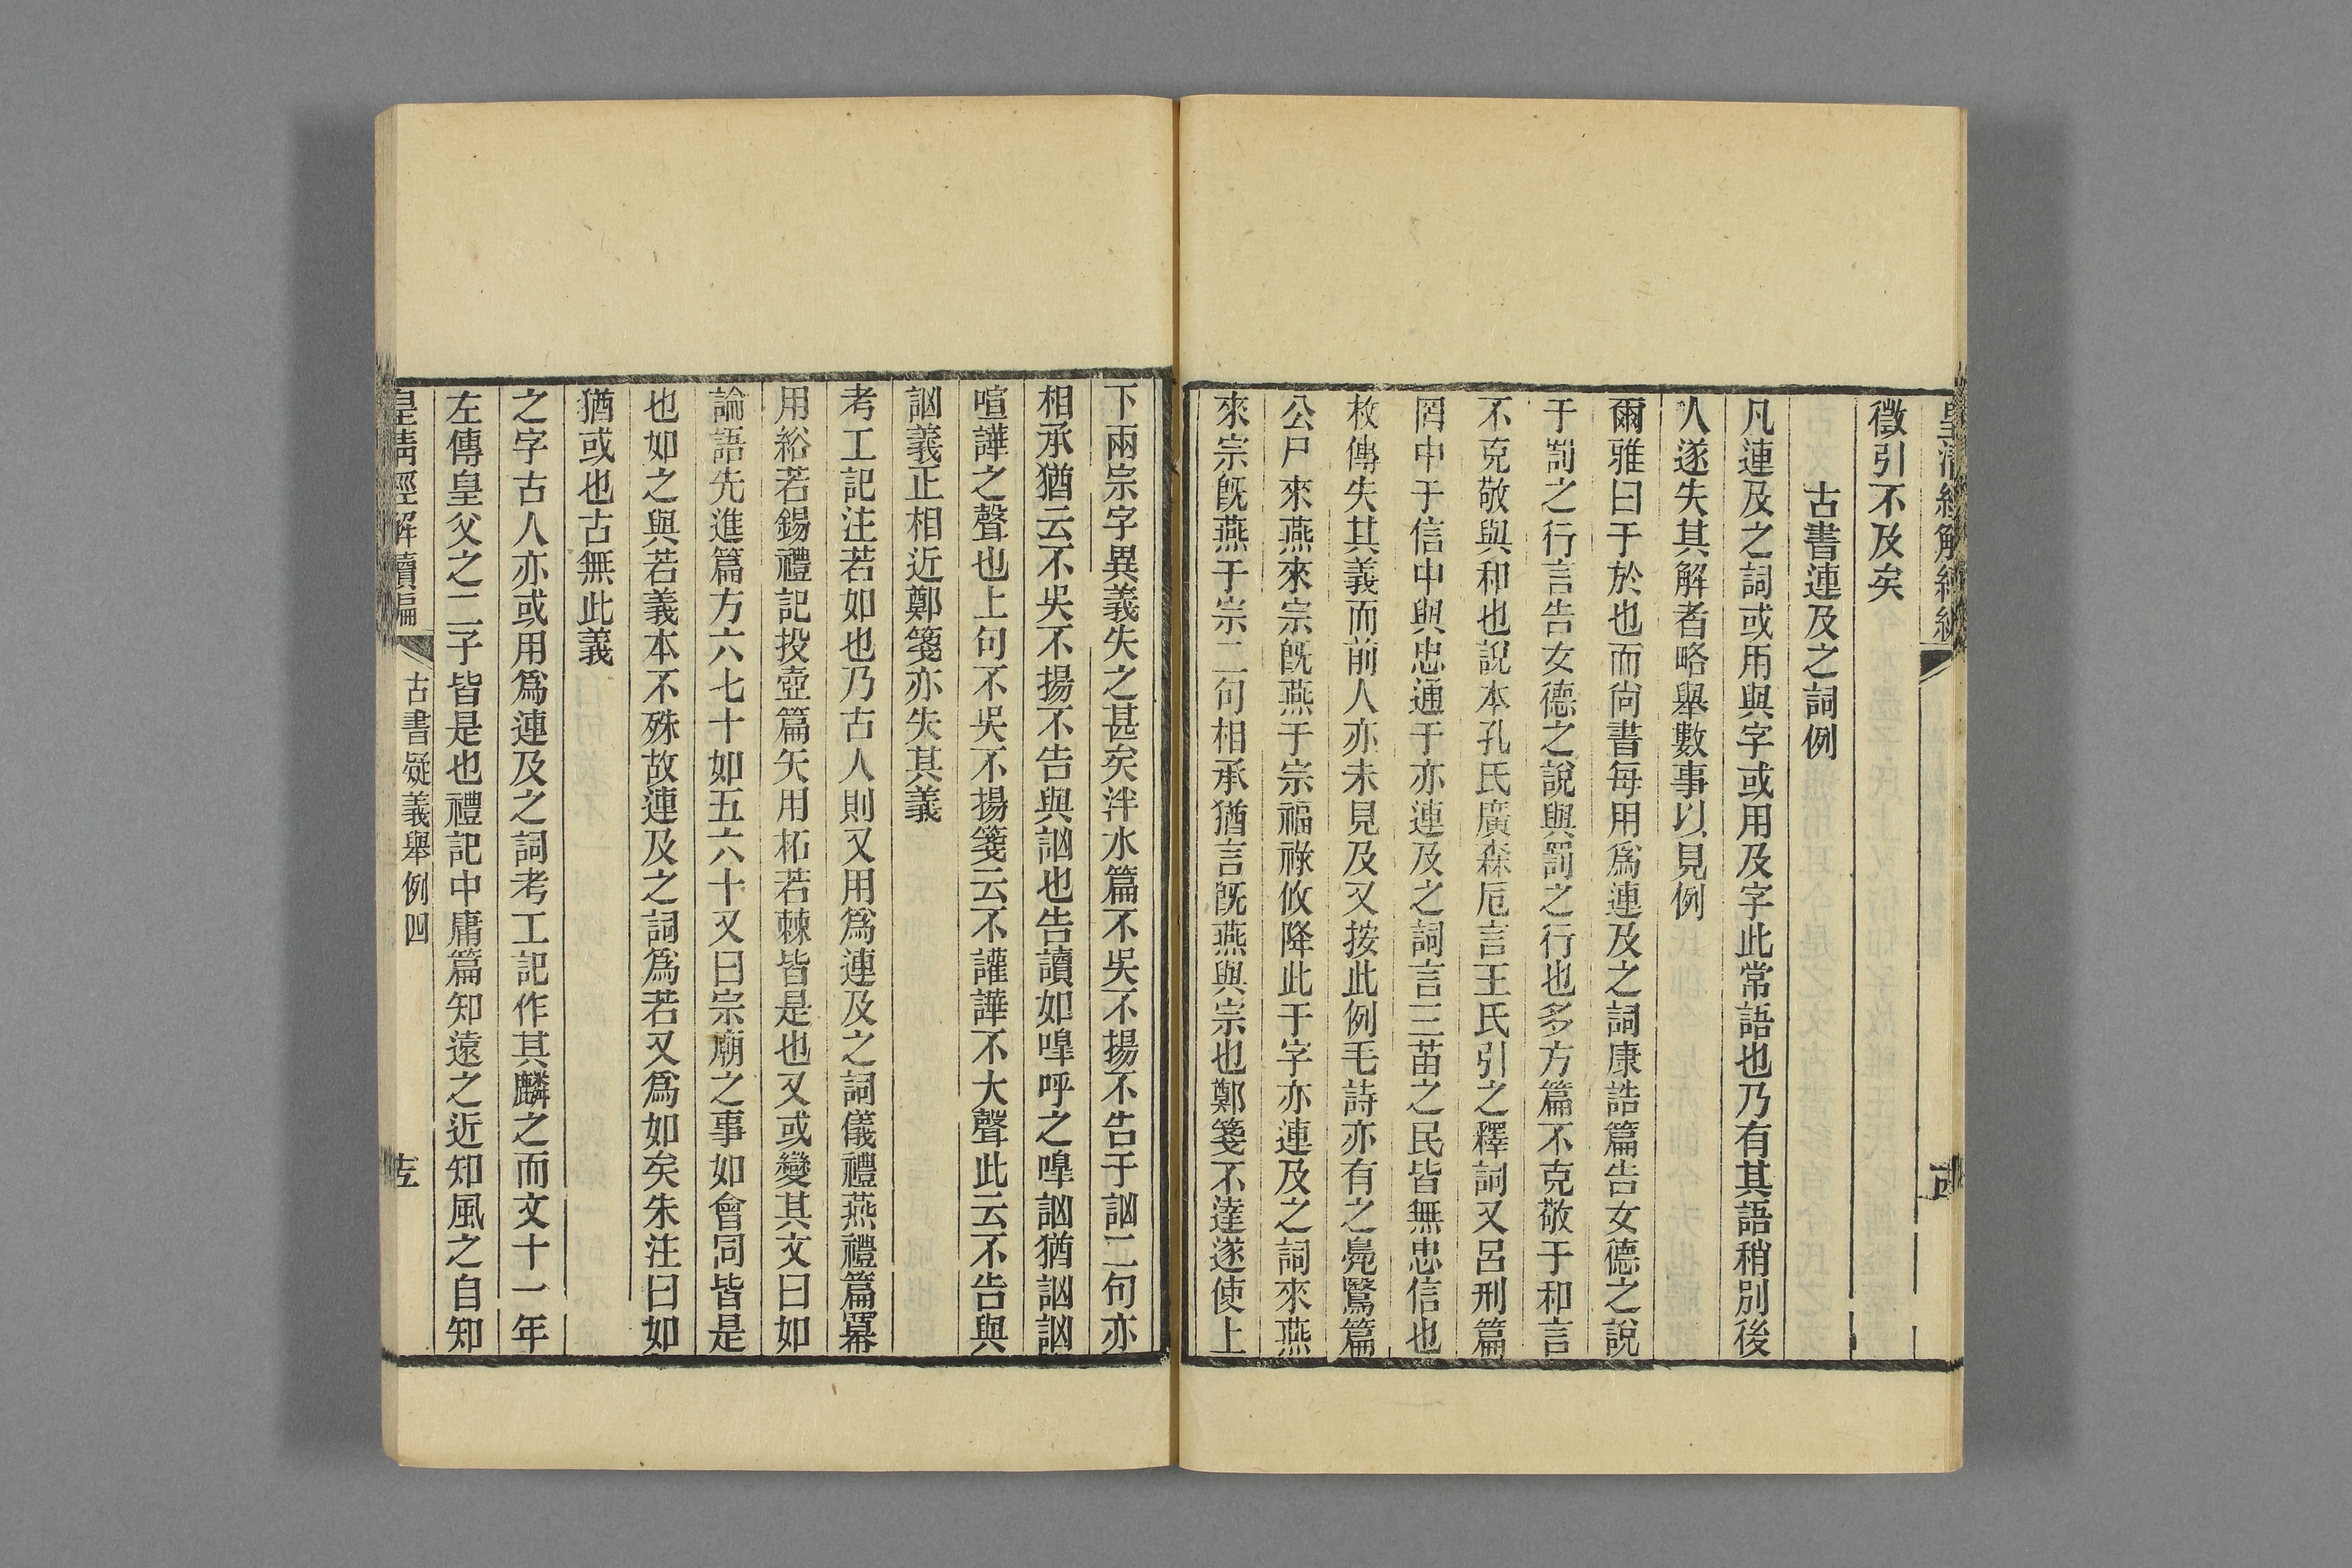 徵引不及矣
古書連及之詞例
凡連及之詞或用與字或用及字此常語也乃有其語稍別後
人遂失其解者略舉數事以見例
爾雅曰于於也而尙書每用爲連及之詞康誥篇告女德之說
于罰之行言告女德之說與罰之行也多方篇不克敬于和言
不克敬與和也說本孔氏廣森卮言王氏引之釋詞又呂刑篇
罔中于信中與忠通于亦連及之詞言三苗之民皆無忠信也
枚傳失其義而前人亦未見及又按此例毛詩亦有之鳧鷖篇
公尸來燕來宗旣燕于宗福祿攸降此于字亦連及之詞來燕
來宗旣燕于宗二句相承猶言旣燕與宗也鄭箋不達遂使上
下兩宗字異義失之甚矣泮水篇不吳不揚不告于訩二句亦
相承猶云不吳不揚不告與訩也告讀如嘷呼之嘷訩猶訩訩
喧譁之聲也上句不吳不揚箋云不讙譁不大聲此云不告與
訩義正相近鄭箋亦失其義
考工記注若如也乃古人則又用爲連及之詞儀禮燕禮篇冪
用綌若錫禮記投壺篇矢用柘若棘皆是也又或變其文曰如
論語先進篇方六七十如五六十又曰宗廟之事如會同皆是
也如之與若義本不殊故連及之詞爲若又爲如矣朱注曰如
猶或也古無此義
之字古人亦或用爲連及之詞考工記作其麟之而文十一年
左傳皇父之二子皆是也禮記中庸篇知遠之近知風之自知
皇淸經解續編 古書疑義舉例四